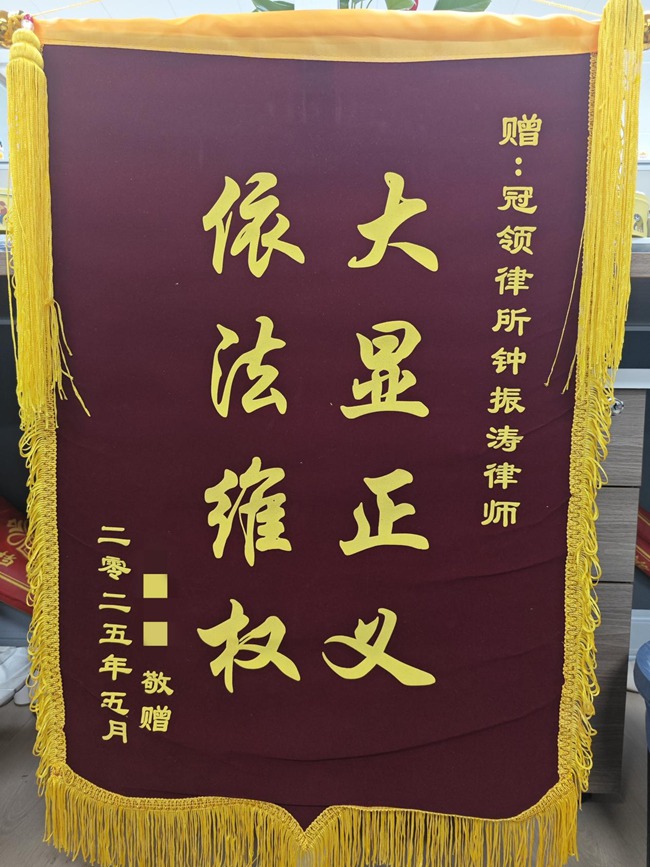 赠：冠领律所钟振涛律师
大显正义
依法维权
敬赠
二零二五年五月